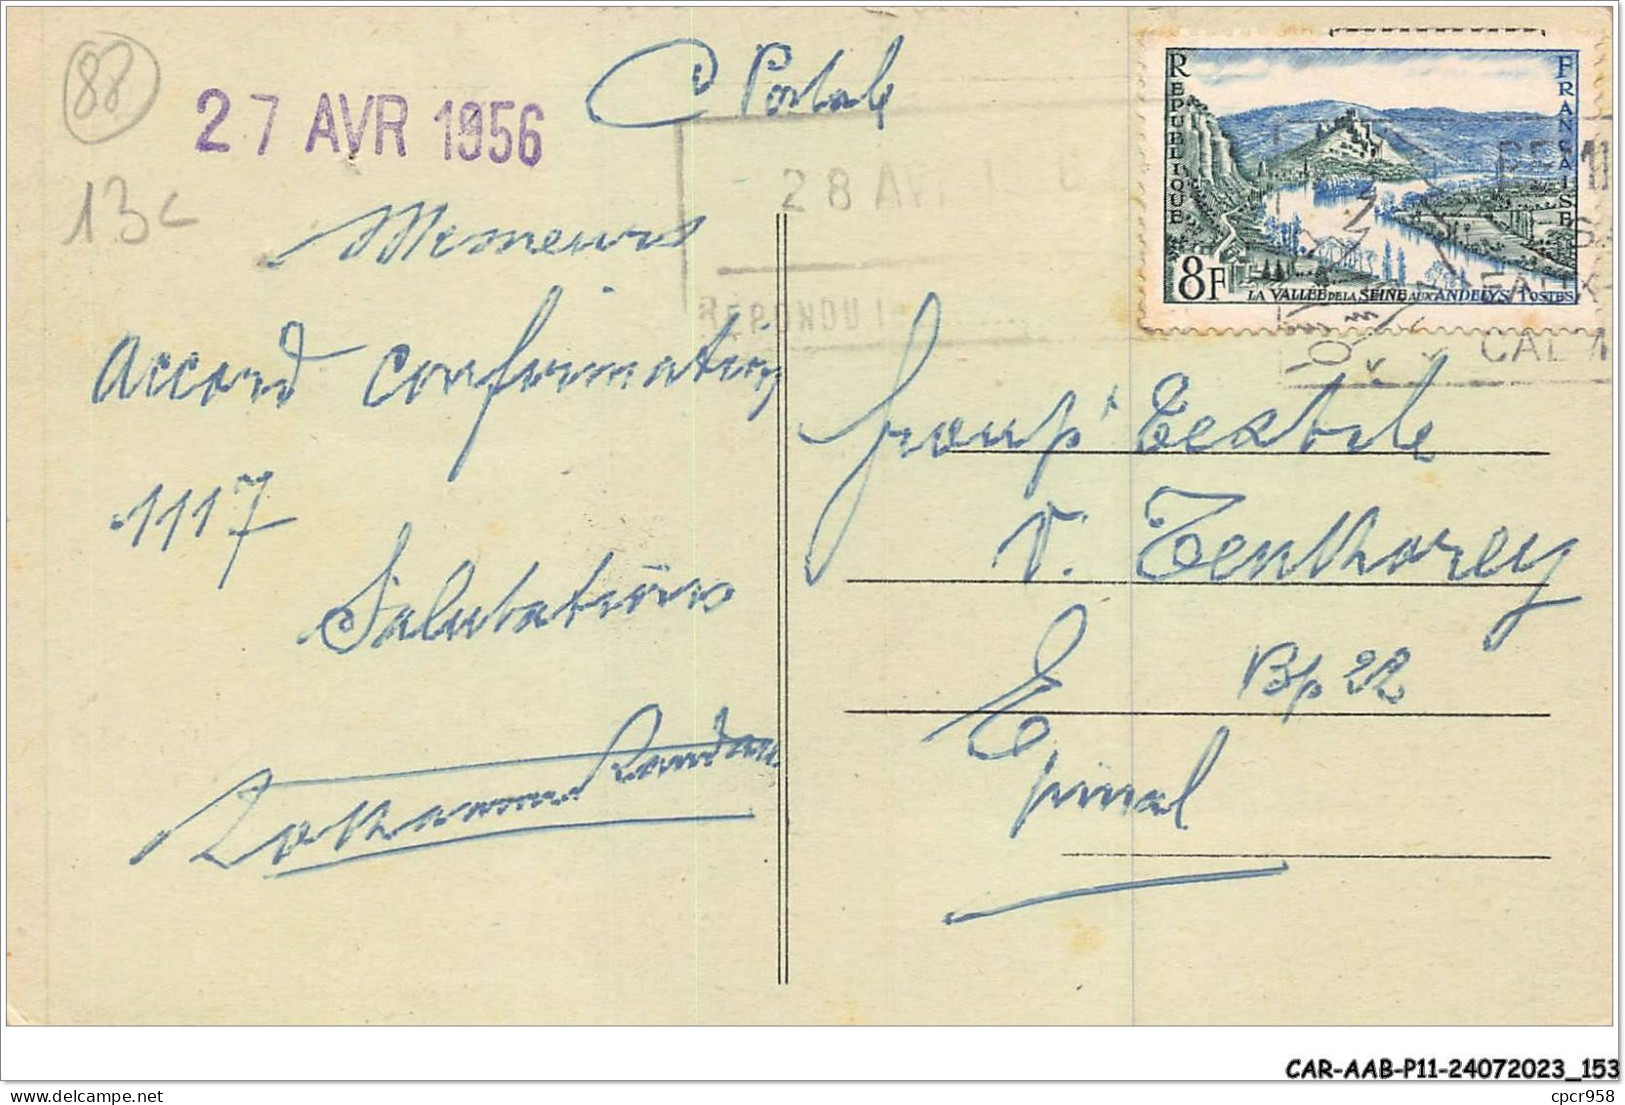 88
13c
27 AVR 1956
C Postale
28 AVR 1956
REPONDU le
REPUBLIQUE FRANÇAISE
8F
LA VALLÉE DE LA SEINE AUX ANDELYS POSTES
CAL
Messieurs
accord confirmation
1117
Salutations
Group' Textile
V. Tenthorey
Bp 22
Epinal
CAR-AAB-P11-24072023_153
cpcr958